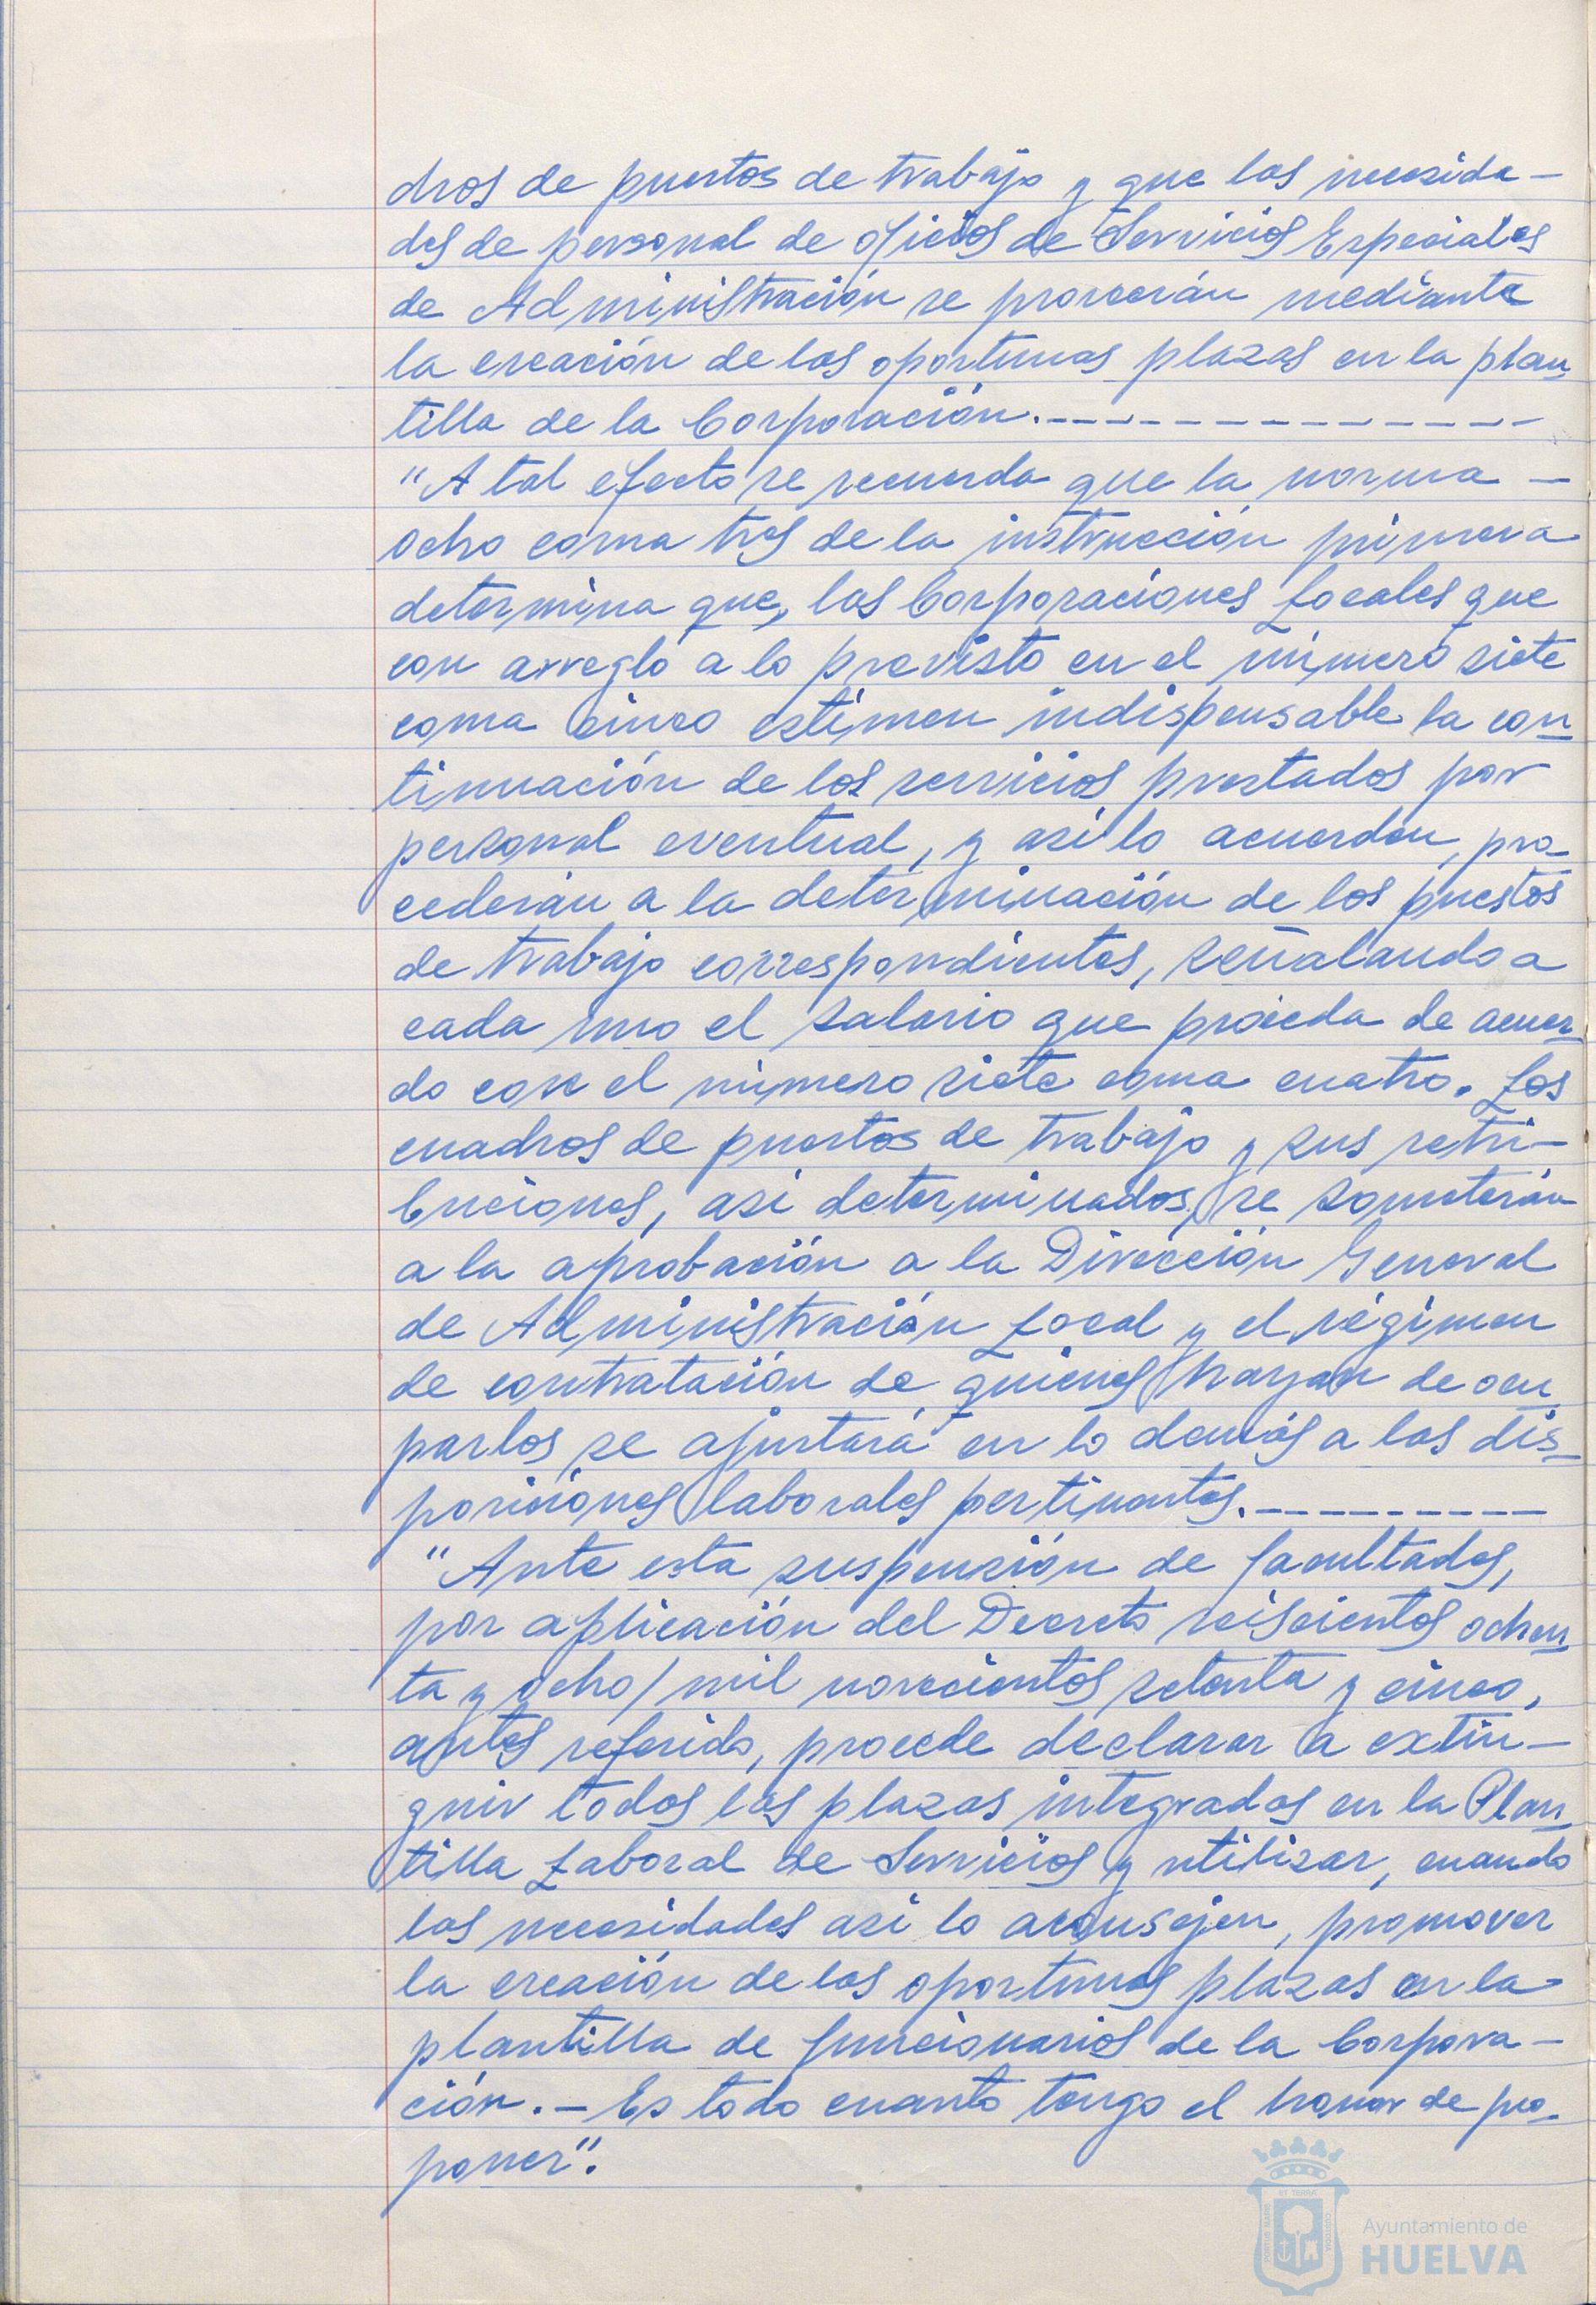 dros de puestos de trabajo y que las necesida-
des de personal de oficios de Servicios Especiales
de Administración se proveerán mediante
la creación de las oportunas plazas en la plan
tilla de la Corporación.---------------
"A tal efecto se recuerda que la norma -
ocho coma tres de la instrucción primera
determina que, las Corporaciones Locales que
con arreglo a lo previsto en el número siete
coma cinco estimen indispensable la con
tinuación de los servicios prestados por
personal eventual, y así lo acuerden, pro
cederán a la determinación de los puestos
de trabajo correspondientes, señalando a
cada uno el salario que proceda de acuer
do con el número siete coma cuatro. Los
cuadros de puestos de trabajo y sus retri-
buciones, así determinados, se someterán
a la aprobación a la Dirección General
de Administración Local y el régimen
de contratación de quienes hayan de ocu
parlos se ajustará en lo demás a las dis
posiciones laborales pertinentes.----------
"Ante esta suspensión de facultades,
por aplicación del Decreto seiscientos ochen
ta y ocho/mil novecientos setenta y cinco,
antes referido, procede declarar a extin-
guir todas las plazas integradas en la Plan
tilla Laboral de Servicios y utilizar, cuando
las necesidades así lo aconsejen, promover
la creación de las oportunas plazas en la
plantilla de funcionarios de la Corpora-
ción.- Es todo cuanto tengo el honor de pro
poner".
Ayuntamiento de
HUELVA